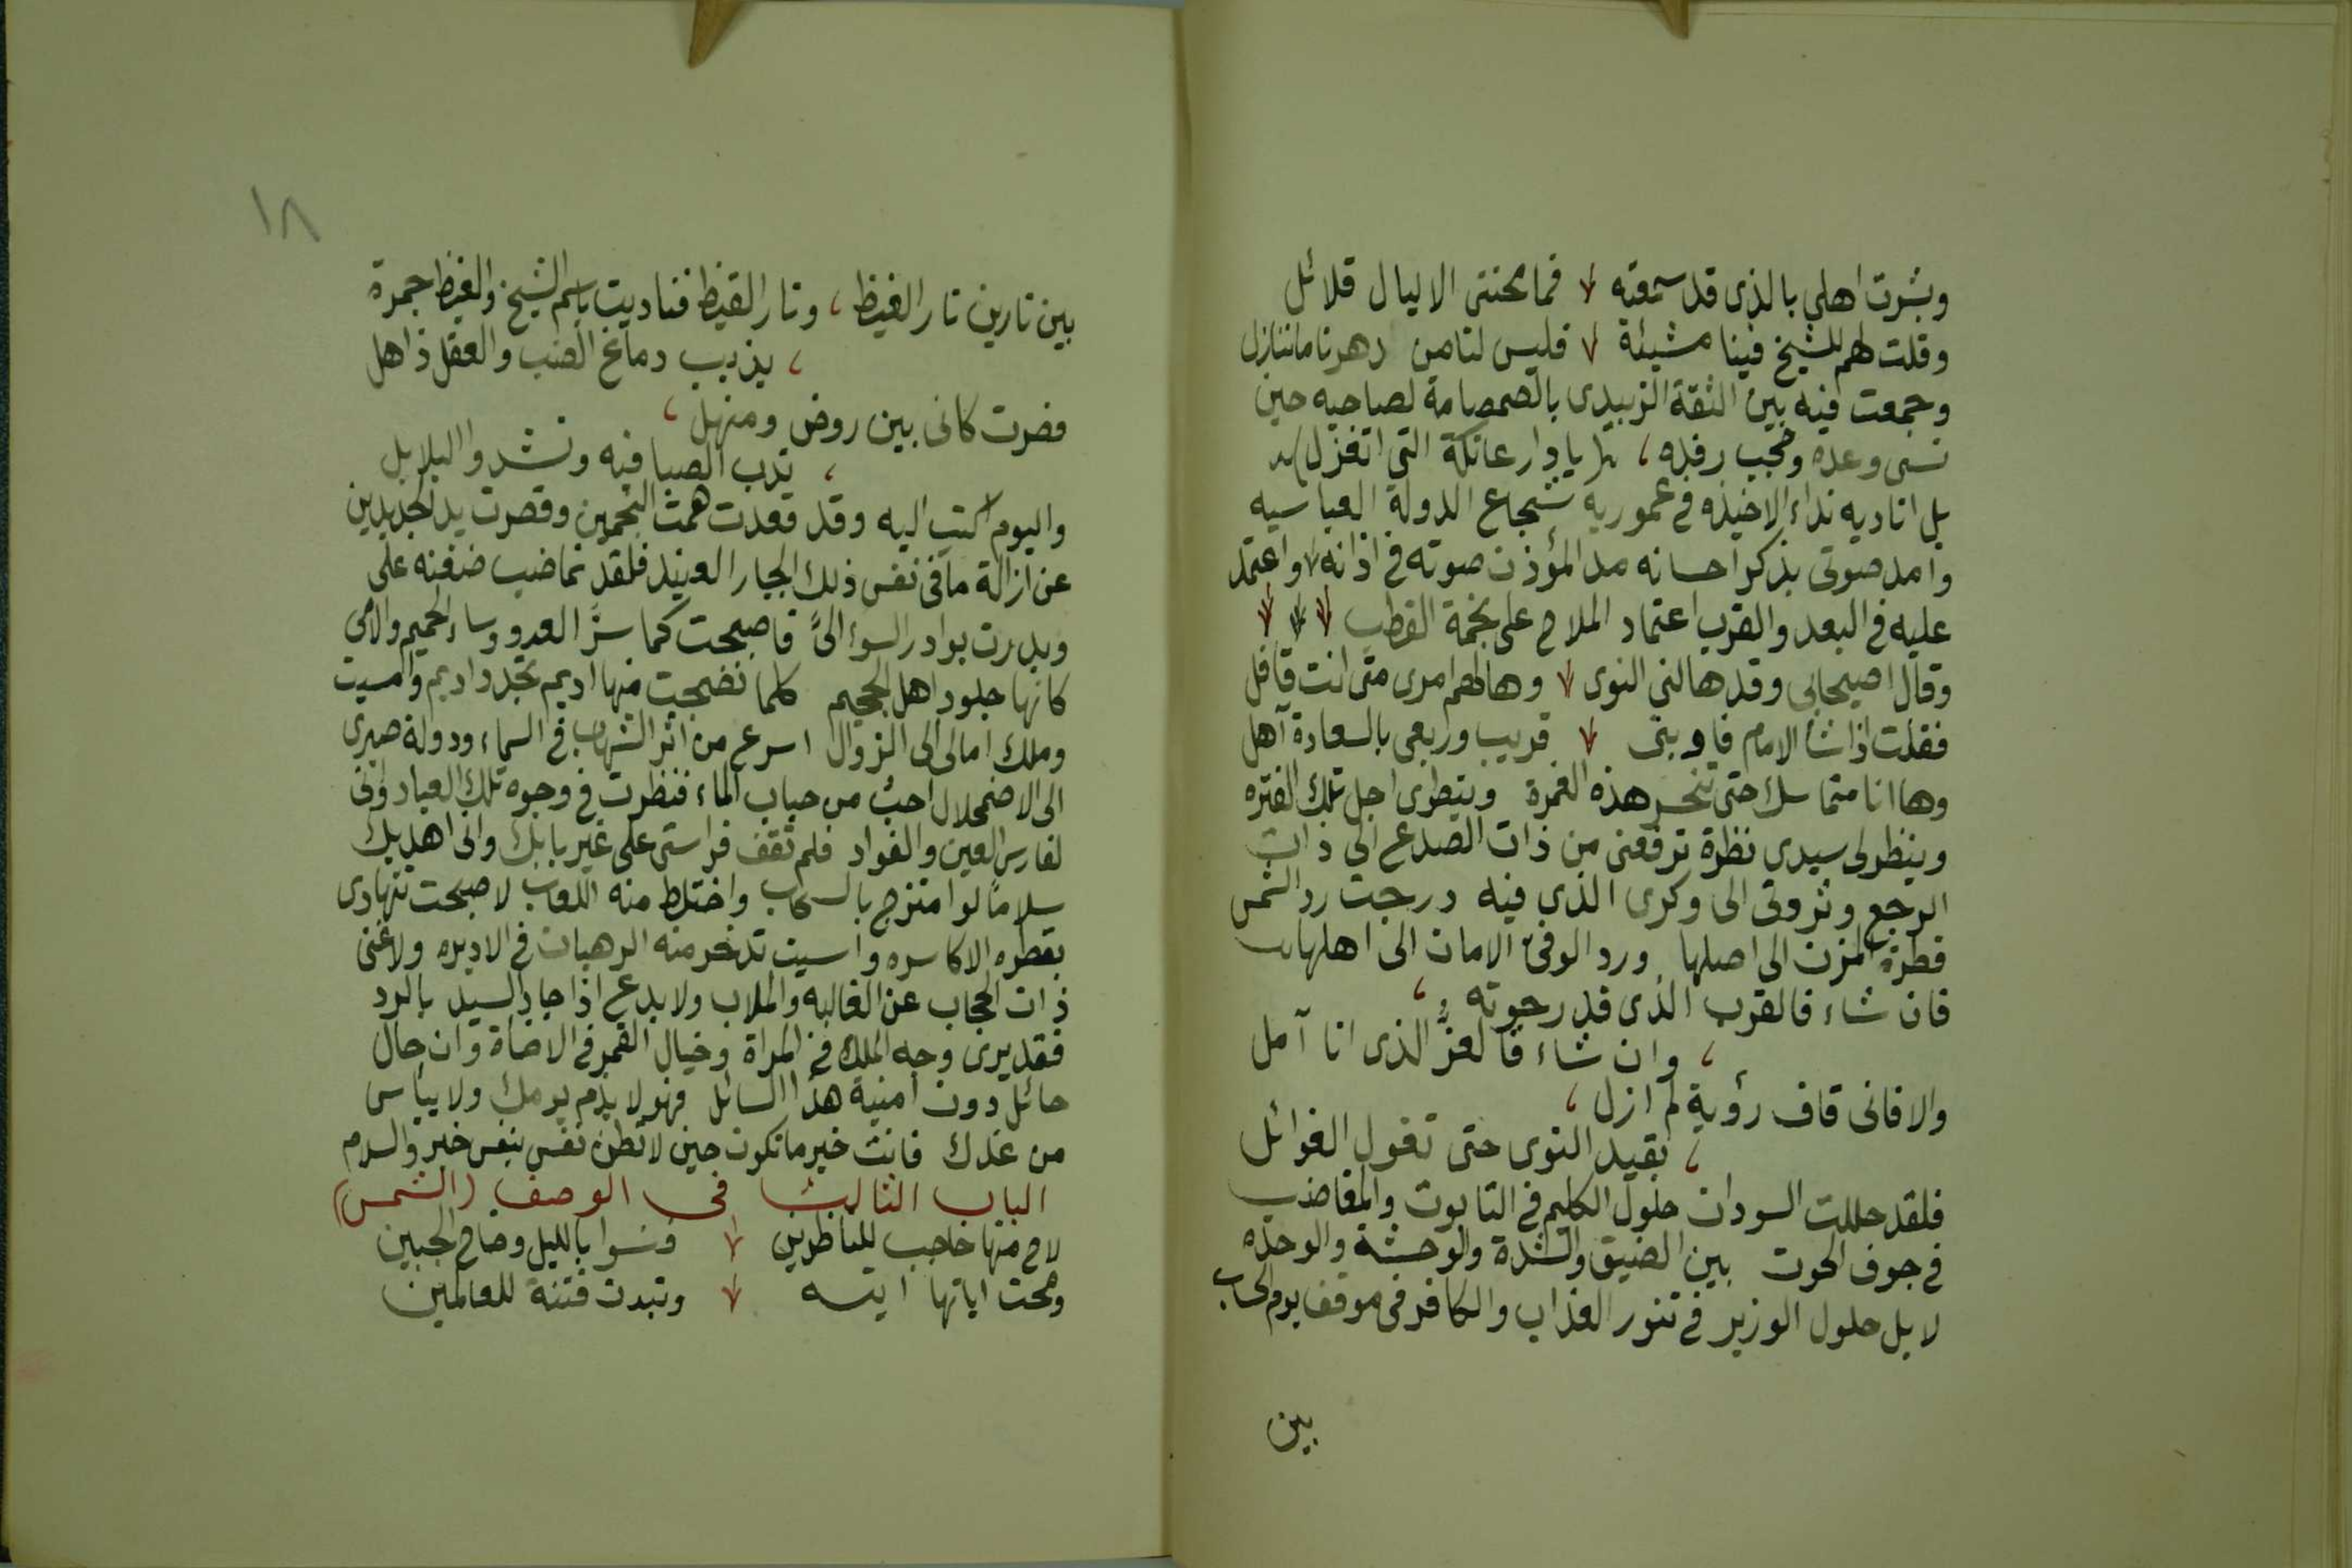 وبشرت اهلي بالذى قد سمعته فما محنتى الا ليال قلائل
وقلت لهم للشيخ فينا مشيئة فليس لنا من دهرنا ما ننازل
وجمعت فيه بين الثقة الزبيدى بالصمصامة لصاحبه حين
نسى وعده وحجب رفده ، (يا دار عاتكة التى اتغزل)
بل اناديه نداء الاخيذه فى عموريه شجاع الدولة العباسيه
وامد صوتى بذكر احسانه مد المؤذن صوته فى اذانه واعتمد
عليه فى البعد والقرب اعتماد الملاح على نجمة القطب
وقال اصيحابى وقد هالنى النوى وهالهم امرى متى انت قافل
فقلت اذا شأ الامام فاوبتى قريب وربعى بالسعادة آهل
وها انا متماسك حتى تنحسر هذه الغمرة وينطوى اجل تلك الفتره
وينظر لى سيدى نظرة ترفعنى من ذات الصدع الى ذات
الرجع وتردنى الى وكرى الذى فيه درجت رد الشمس
قطرة المزن الى اصلها ورد الوفى الامان الى اهلها
فان شاء فالقرب الذى قد رجوته ،
، وان شاء فالعزّ الذى انا آمل
والا فانى قاف رؤبة لم ازل ،
، بقيد النوى حتى تغول الغوائل
فلقد حللت السودان حلول الكليم فى التابوت والمغاضب
فى جوف الحوت بين الضيق والشدة والوحشة والوحده
لا بل حلول الوزير فى تنور العذاب والكافر فى موقف يوم الحساب
بين
١٨
بين نارين نار الغيظ ، ونار القيظ فناديت باسم الشيخ والغيظ جمرة
، يذيب دماغ الضب والعقل ذاهل
فصرت كانى بين روض ومنهل ،
، تدب الصبا فيه وتشدوا البلابل
واليوم اكتب اليه وقد قعدت همت النجمين وقصرت يد الجديدين
عن ازالة ما فى نفس ذلك الجبار العنيد فلقد نما ضب ضغنه على
وبدرت بوادر السوء الىّ فاصبحت كما سرّ العدو وساء الحميم والامى
كانها جلود اهل الجحيم كلما نضجت منها اديم تجدد اديم وامسيت
وملك امالى الى الزوال اسرع من اثر الشهاب فى السماء ودولة صبرى
الى الاضمحلال احث من حباب الماء فنظرت فى وجوه تلك العباد وانى
لفارس العين والفواد فلم تقف فراستى على غير بابك وانى اهديك
سلاما لو امتزج بالسحاب واختلط منه اللعاب لاصبحت تتهادى
بقطره الاكاسره وامسيت تدخر منه الرهبان فى الاديره ولاغنى
ذات الحجاب عن الغاليه والملاب ولا بدع اذا جاد السيد بالرد
فقد يرى وجه الملك فى المراة وخيال القمر فى الاضاة وان حال
حائل دون امنية هذا السائل فهو لا يذم يومك ولا ييأس
من غدك فانت خير ما تكون حين لا تظن نفس بنفس خير والسلام
الباب الثالث فى الوصف (الشمس)
لاح منها حاجب للناظرين فنسوا بالليل وضاح الجبين
ومحت اياتها ايته وتبدت فتنة للعالمين